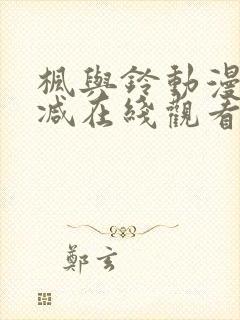 楓與鈴動漫
减在綫觀看
鄭玄